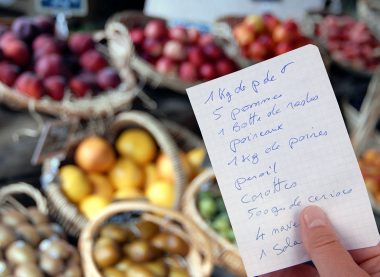 1 Kg de p de t
5 pommes
1 Botte de radis
poireaux
1 Kg de poires
persil
carottes
500g de cerises
4 nave
1 Sala